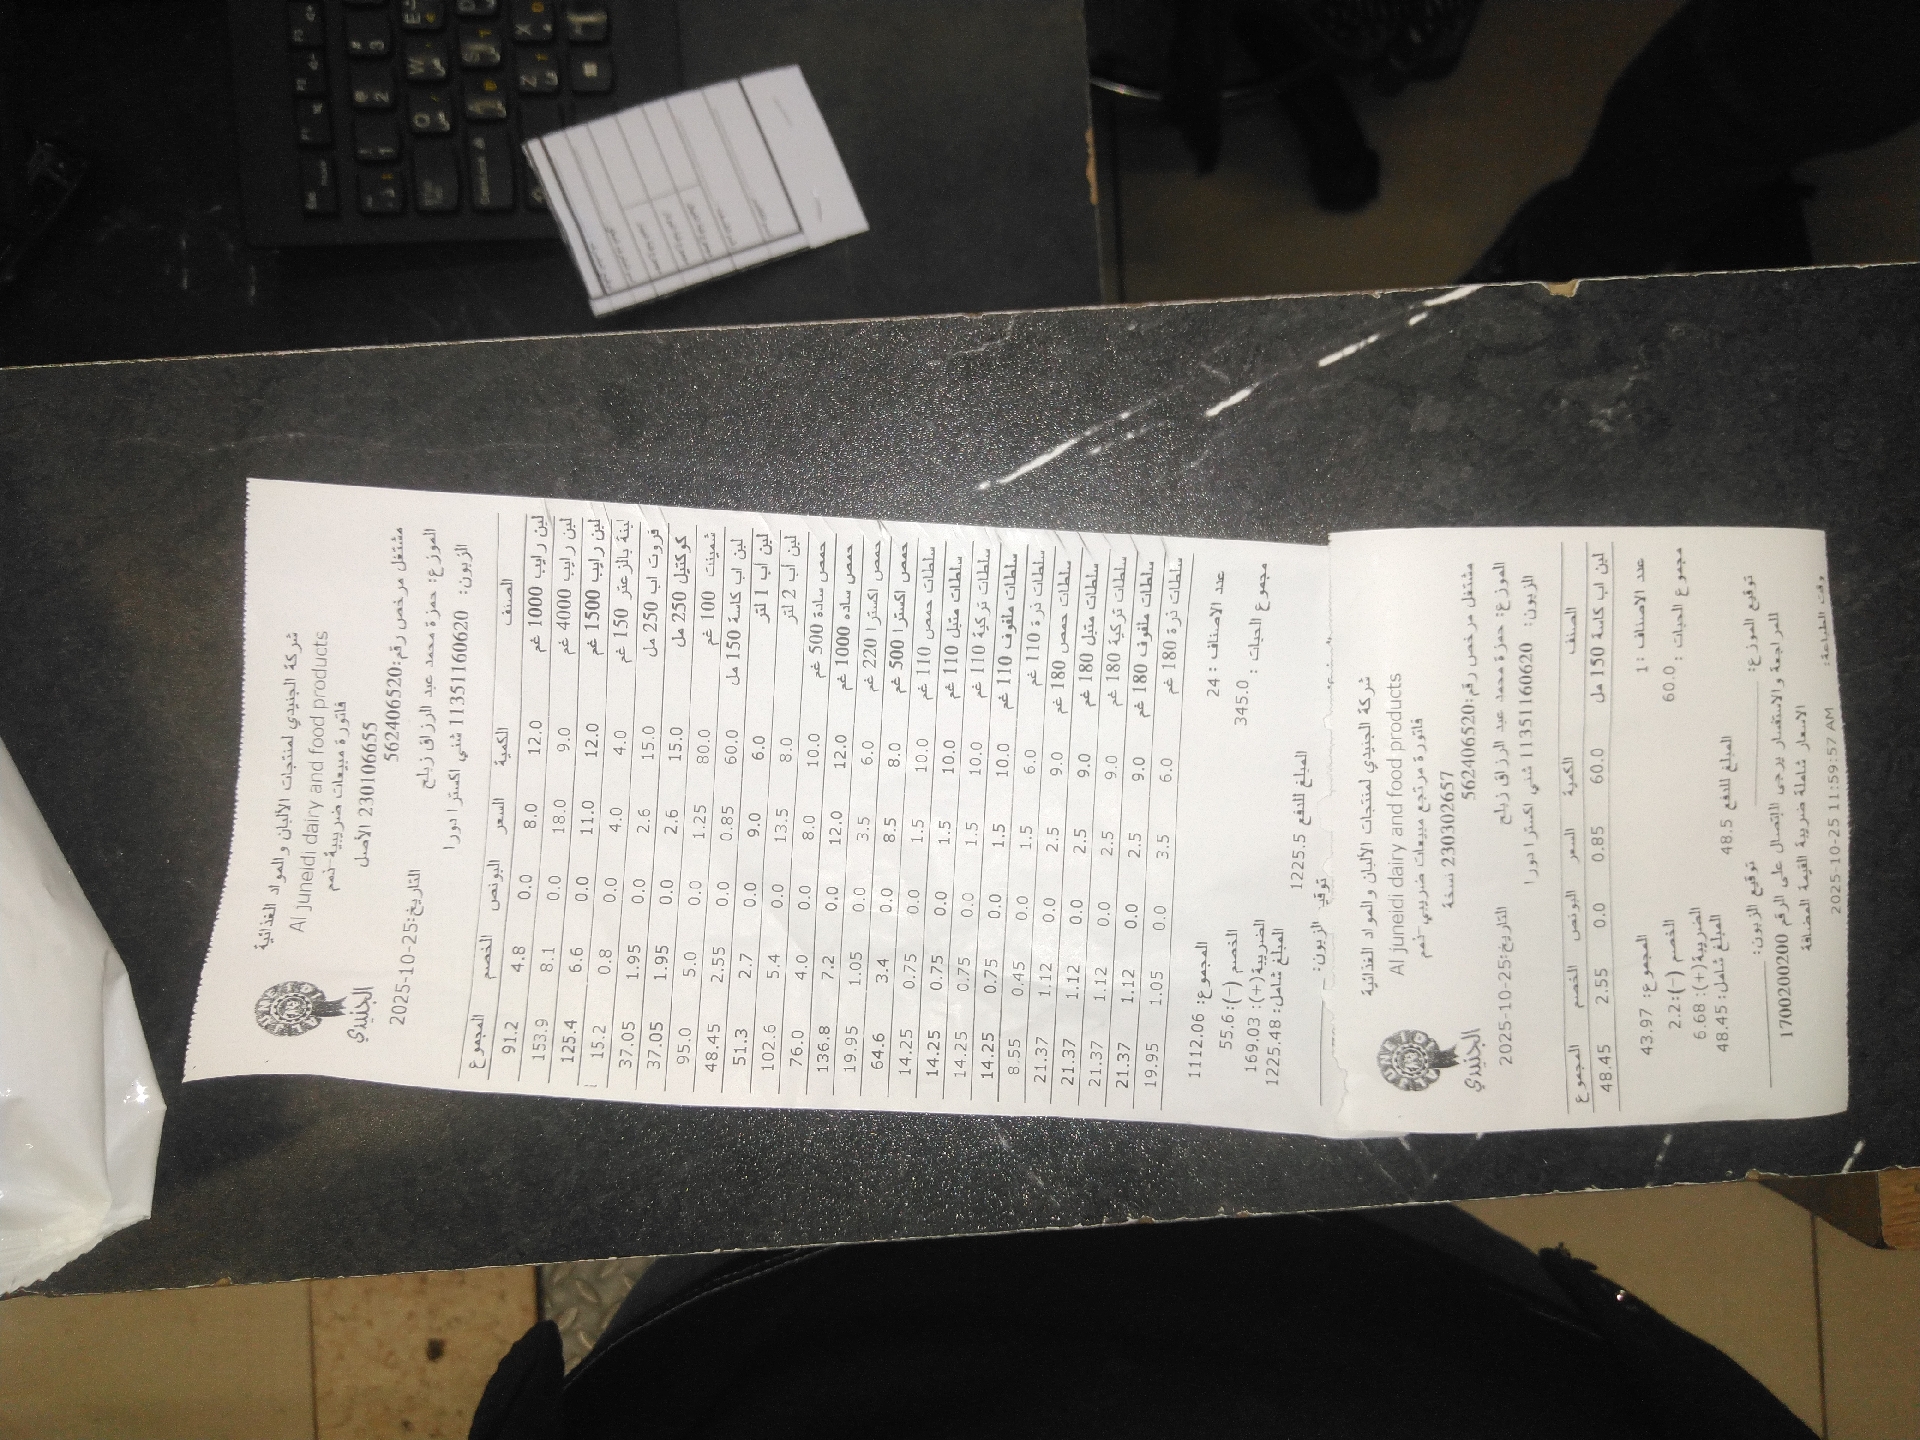 شركة الجنيدي لمنتجات الألبان والمواد الغذائية
Al juneidi dairy and food products
فاتورة مبيعات ضريبية-ذمم
230106655 الأصل
الجنيدي
مشتغل مرخص رقم:562406520
التاريخ:25-10-2025 الموزع: حمزة محمد عبد الرزاق زبلح
الزبون: 11351160620 شني اكسترا دورا
الصنف الكمية السعر البونص الخصم المجموع
لبن رايب 1000 غم 12.0 8.0 0.0 4.8 91.2
لبن رايب 4000 غم 9.0 18.0 0.0 8.1 153.9
لبن رايب 1500 غم 12.0 11.0 0.0 6.6 125.4
لبنة بالزعتر 150 غم 4.0 4.0 0.0 0.8 15.2
فروت اب 250 مل 15.0 2.6 0.0 1.95 37.05
كوكتيل 250 مل 15.0 2.6 0.0 1.95 37.05
شمينت 100 غم 80.0 1.25 0.0 5.0 95.0
لبن اب كاسة 150 مل 60.0 0.85 0.0 2.55 48.45
لبن اب 1 لتر 6.0 9.0 0.0 2.7 51.3
لبن اب 2 لتر 8.0 13.5 0.0 5.4 102.6
حمص سادة 500 غم 10.0 8.0 0.0 4.0 76.0
حمص ساده 1000 غم 12.0 12.0 0.0 7.2 136.8
حمص اكسترا 220 غم 6.0 3.5 0.0 1.05 19.95
حمص اكسترا 500 غم 8.0 8.5 0.0 3.4 64.6
سلطات حمص 110 غم 10.0 1.5 0.0 0.75 14.25
سلطات متبل 110 غم 10.0 1.5 0.0 0.75 14.25
سلطات تركية 110 غم 10.0 1.5 0.0 0.75 14.25
سلطات ملفوف 110 غم 10.0 1.5 0.0 0.75 14.25
سلطات ذرة 110 غم 6.0 1.5 0.0 0.45 8.55
سلطات حمص 180 غم 9.0 2.5 0.0 1.12 21.37
سلطات متبل 180 غم 9.0 2.5 0.0 1.12 21.37
سلطات تركية 180 غم 9.0 2.5 0.0 1.12 21.37
سلطات ملفوف 180 غم 9.0 2.5 0.0 1.12 21.37
سلطات ذرة 180 غم 6.0 3.5 0.0 1.05 19.95
عدد الاصناف : 24 المجموع: 1112.06
مجموع الحبات : 345.0 الخصم (-): 55.6
الضريبة(+): 169.03
المبلغ شامل: 1225.48
المبلغ للدفع 1225.5
الزبون:
شركة الجنيدي لمنتجات الألبان والمواد الغذائية
Al juneidi dairy and food products
فاتورة مرتجع مبيعات ضريبي-ذمم
230302657 نسخة
الجنيدي
مشتغل مرخص رقم:562406520
التاريخ:25-10-2025 الموزع: حمزة محمد عبد الرزاق زبلح
الزبون: 11351160620 شني اكسترا دورا
الصنف الكمية السعر البونص الخصم المجموع
لبن اب كاسة 150 مل 60.0 0.85 0.0 2.55 48.45
عدد الاصناف : 1 المجموع: 43.97
مجموع الحبات : 60.0 الخصم (-): 2.2
الضريبة(+): 6.68
المبلغ شامل: 48.45
المبلغ للدفع 48.5
توقيع الموزع: توقيع الزبون:
للمراجعة والاستفسار يرجى الاتصال على الرقم 1700200200
الاسعار شاملة ضريبة القيمة المضافة
وقت الطباعة: 2025-10-25 11:59:57 AM